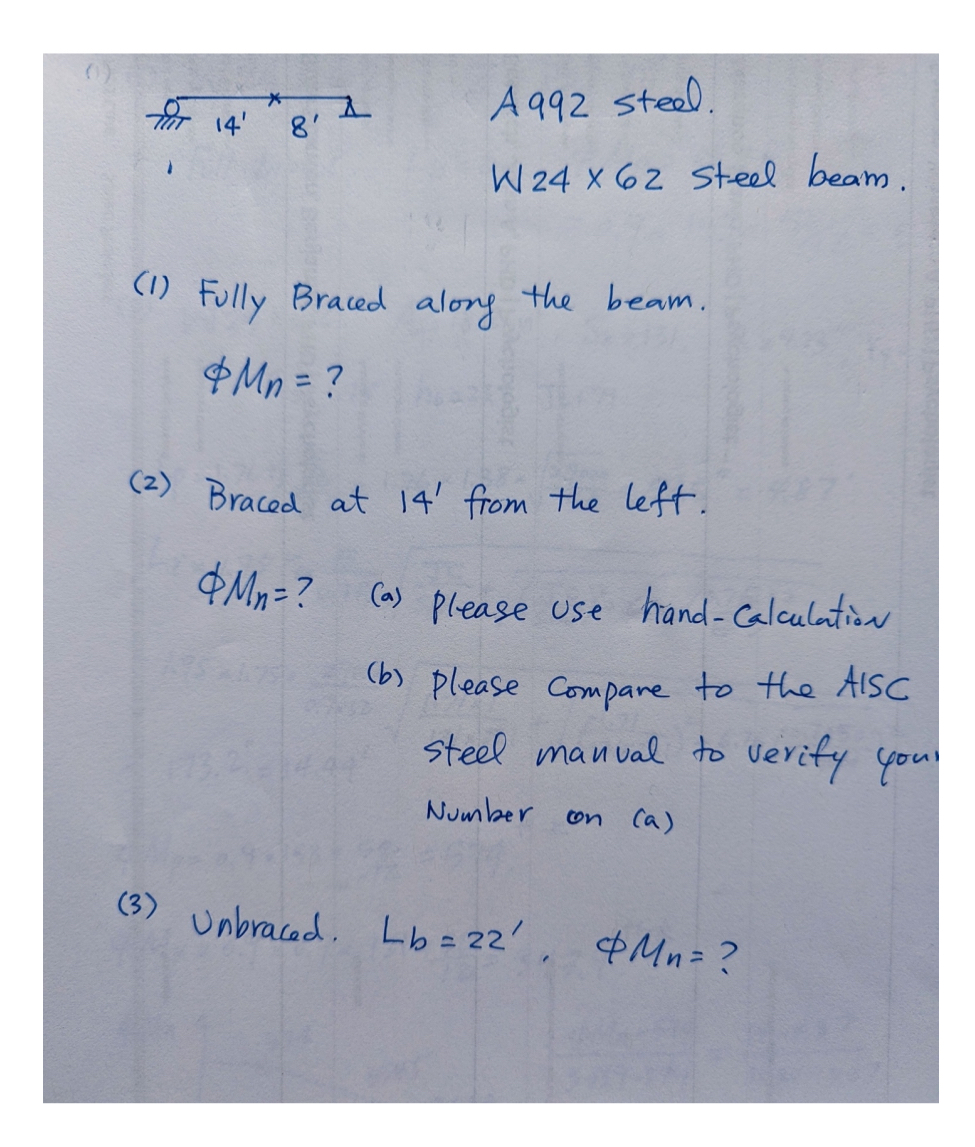 (1)
14' 8'
A992 steel.
W24 x 62 steel beam.
(1) Fully Braced along the beam.
ΦMn = ?
(2) Braced at 14' from the left.
ΦMn=? (a) please use hand-calculation
(b) please compare to the AISC
steel manual to verify your
Number on (a)
(3) Unbraced. Lb = 22'. ΦMn = ?